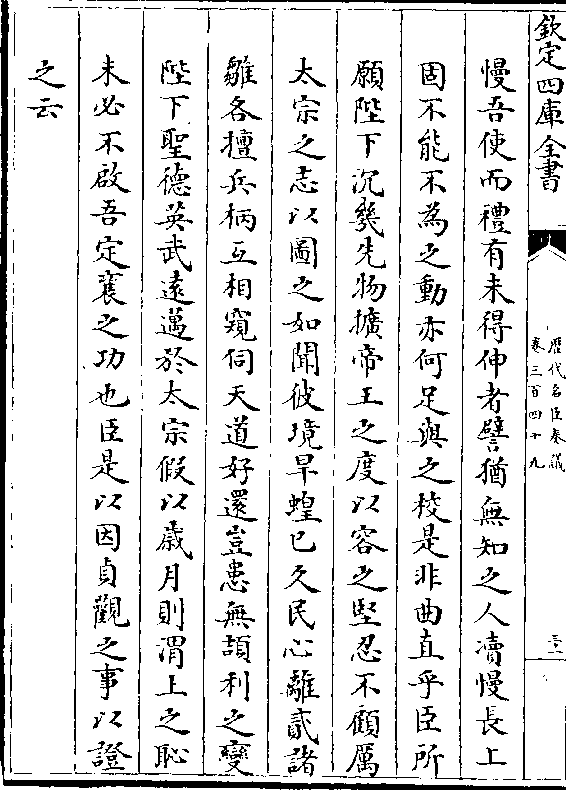 欽定四庫全書
歷代名臣奏議
卷三百四十九
慢吾使而禮有未得伸者譬猶無知之人凟慢長上
固不能不為之動亦何足與之校是非曲直乎臣所
願陛下沉幾先物擴帝王之度以容之堅忍不顧厲
太宗之志以圖之如聞彼境旱蝗已久民心離貳諸
雛各擅兵柄互相窺伺天道好還豈患無頡利之變
陛下聖德英武遠邁於太宗假以歲月則渭上之恥
未必不啟吾定襄之功也臣是以因貞觀之事以證
之云